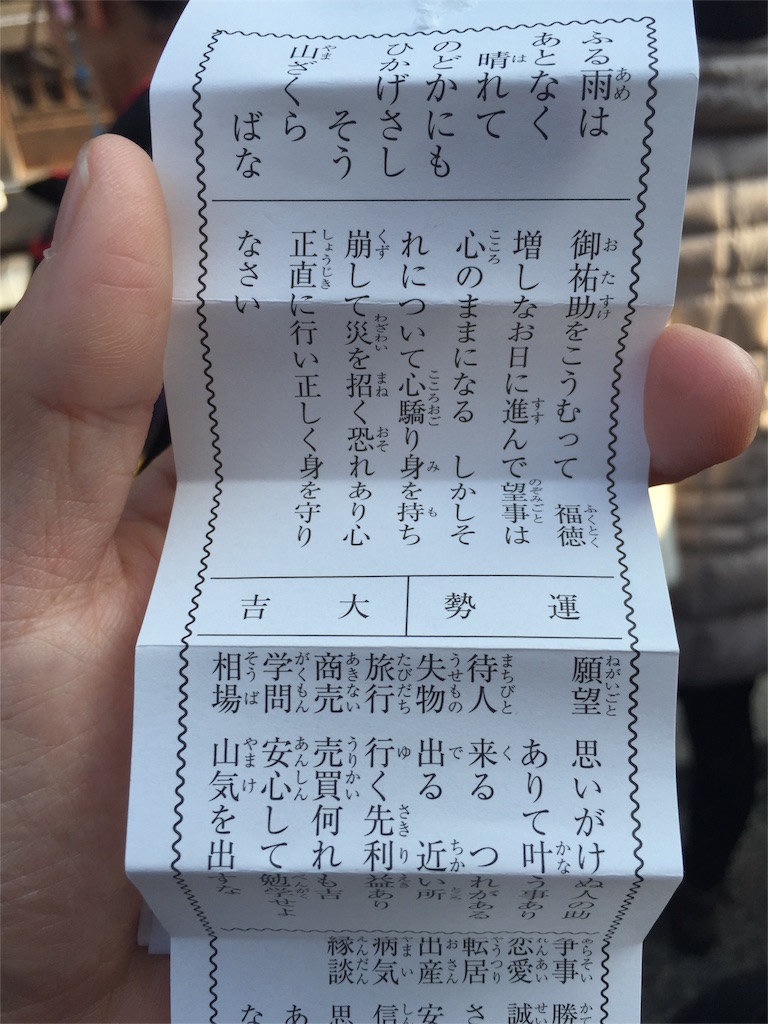 ふる雨は
あとなく
晴れて
のどかにも
ひかげさし
そう
山ざくら
ばな
御祐助をこうむって 福徳
増しなお日に進んで望事は
心のままになる しかしそ
れについて心驕り身を持ち
崩して災を招く恐れあり心
正直に行い正しく身を守り
なさい
運勢 大吉
願望 思いがけぬ人の助
ありて叶う事あり
待人 来る つれがある
失物 出る 近い所
旅行 行く先利益あり
商売 売買何れも吉
学問 安心して勉学せよ
相場 山気を出すな
争事 勝
恋愛 誠
転居 さ
出産 安
病気 信
縁談 思
あ
な